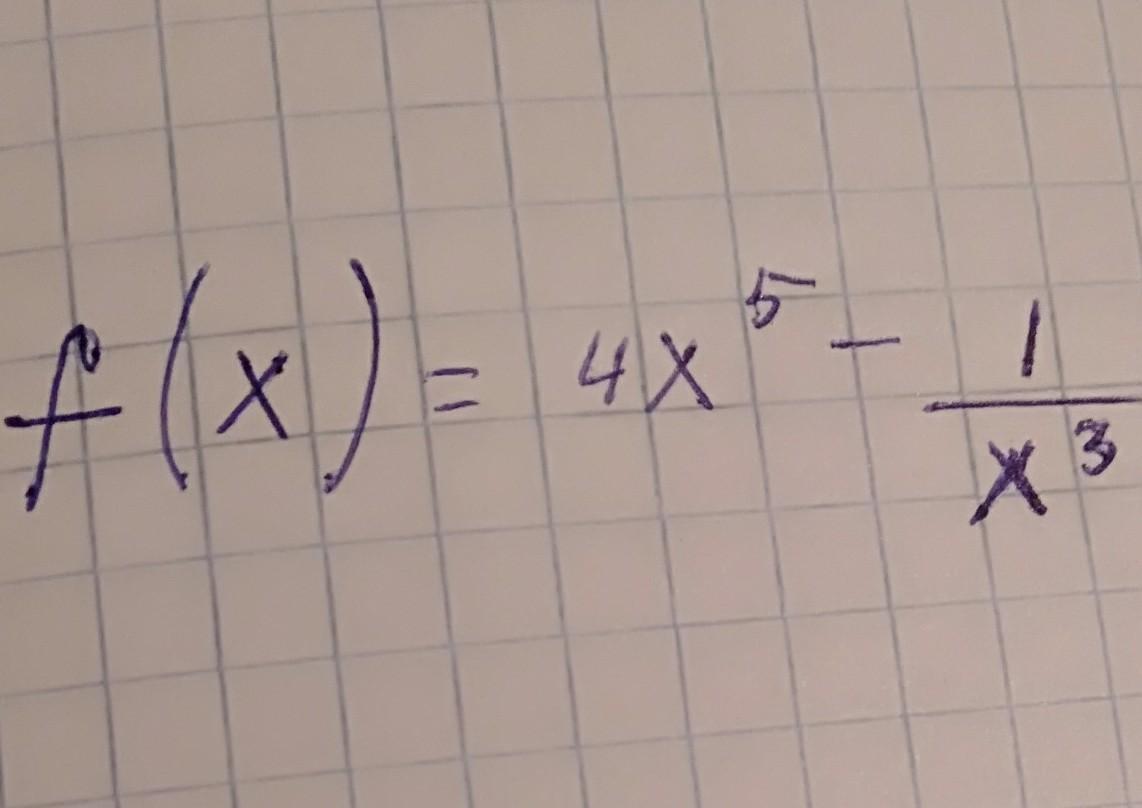 f(x) = 4x⁵ - 1/x³